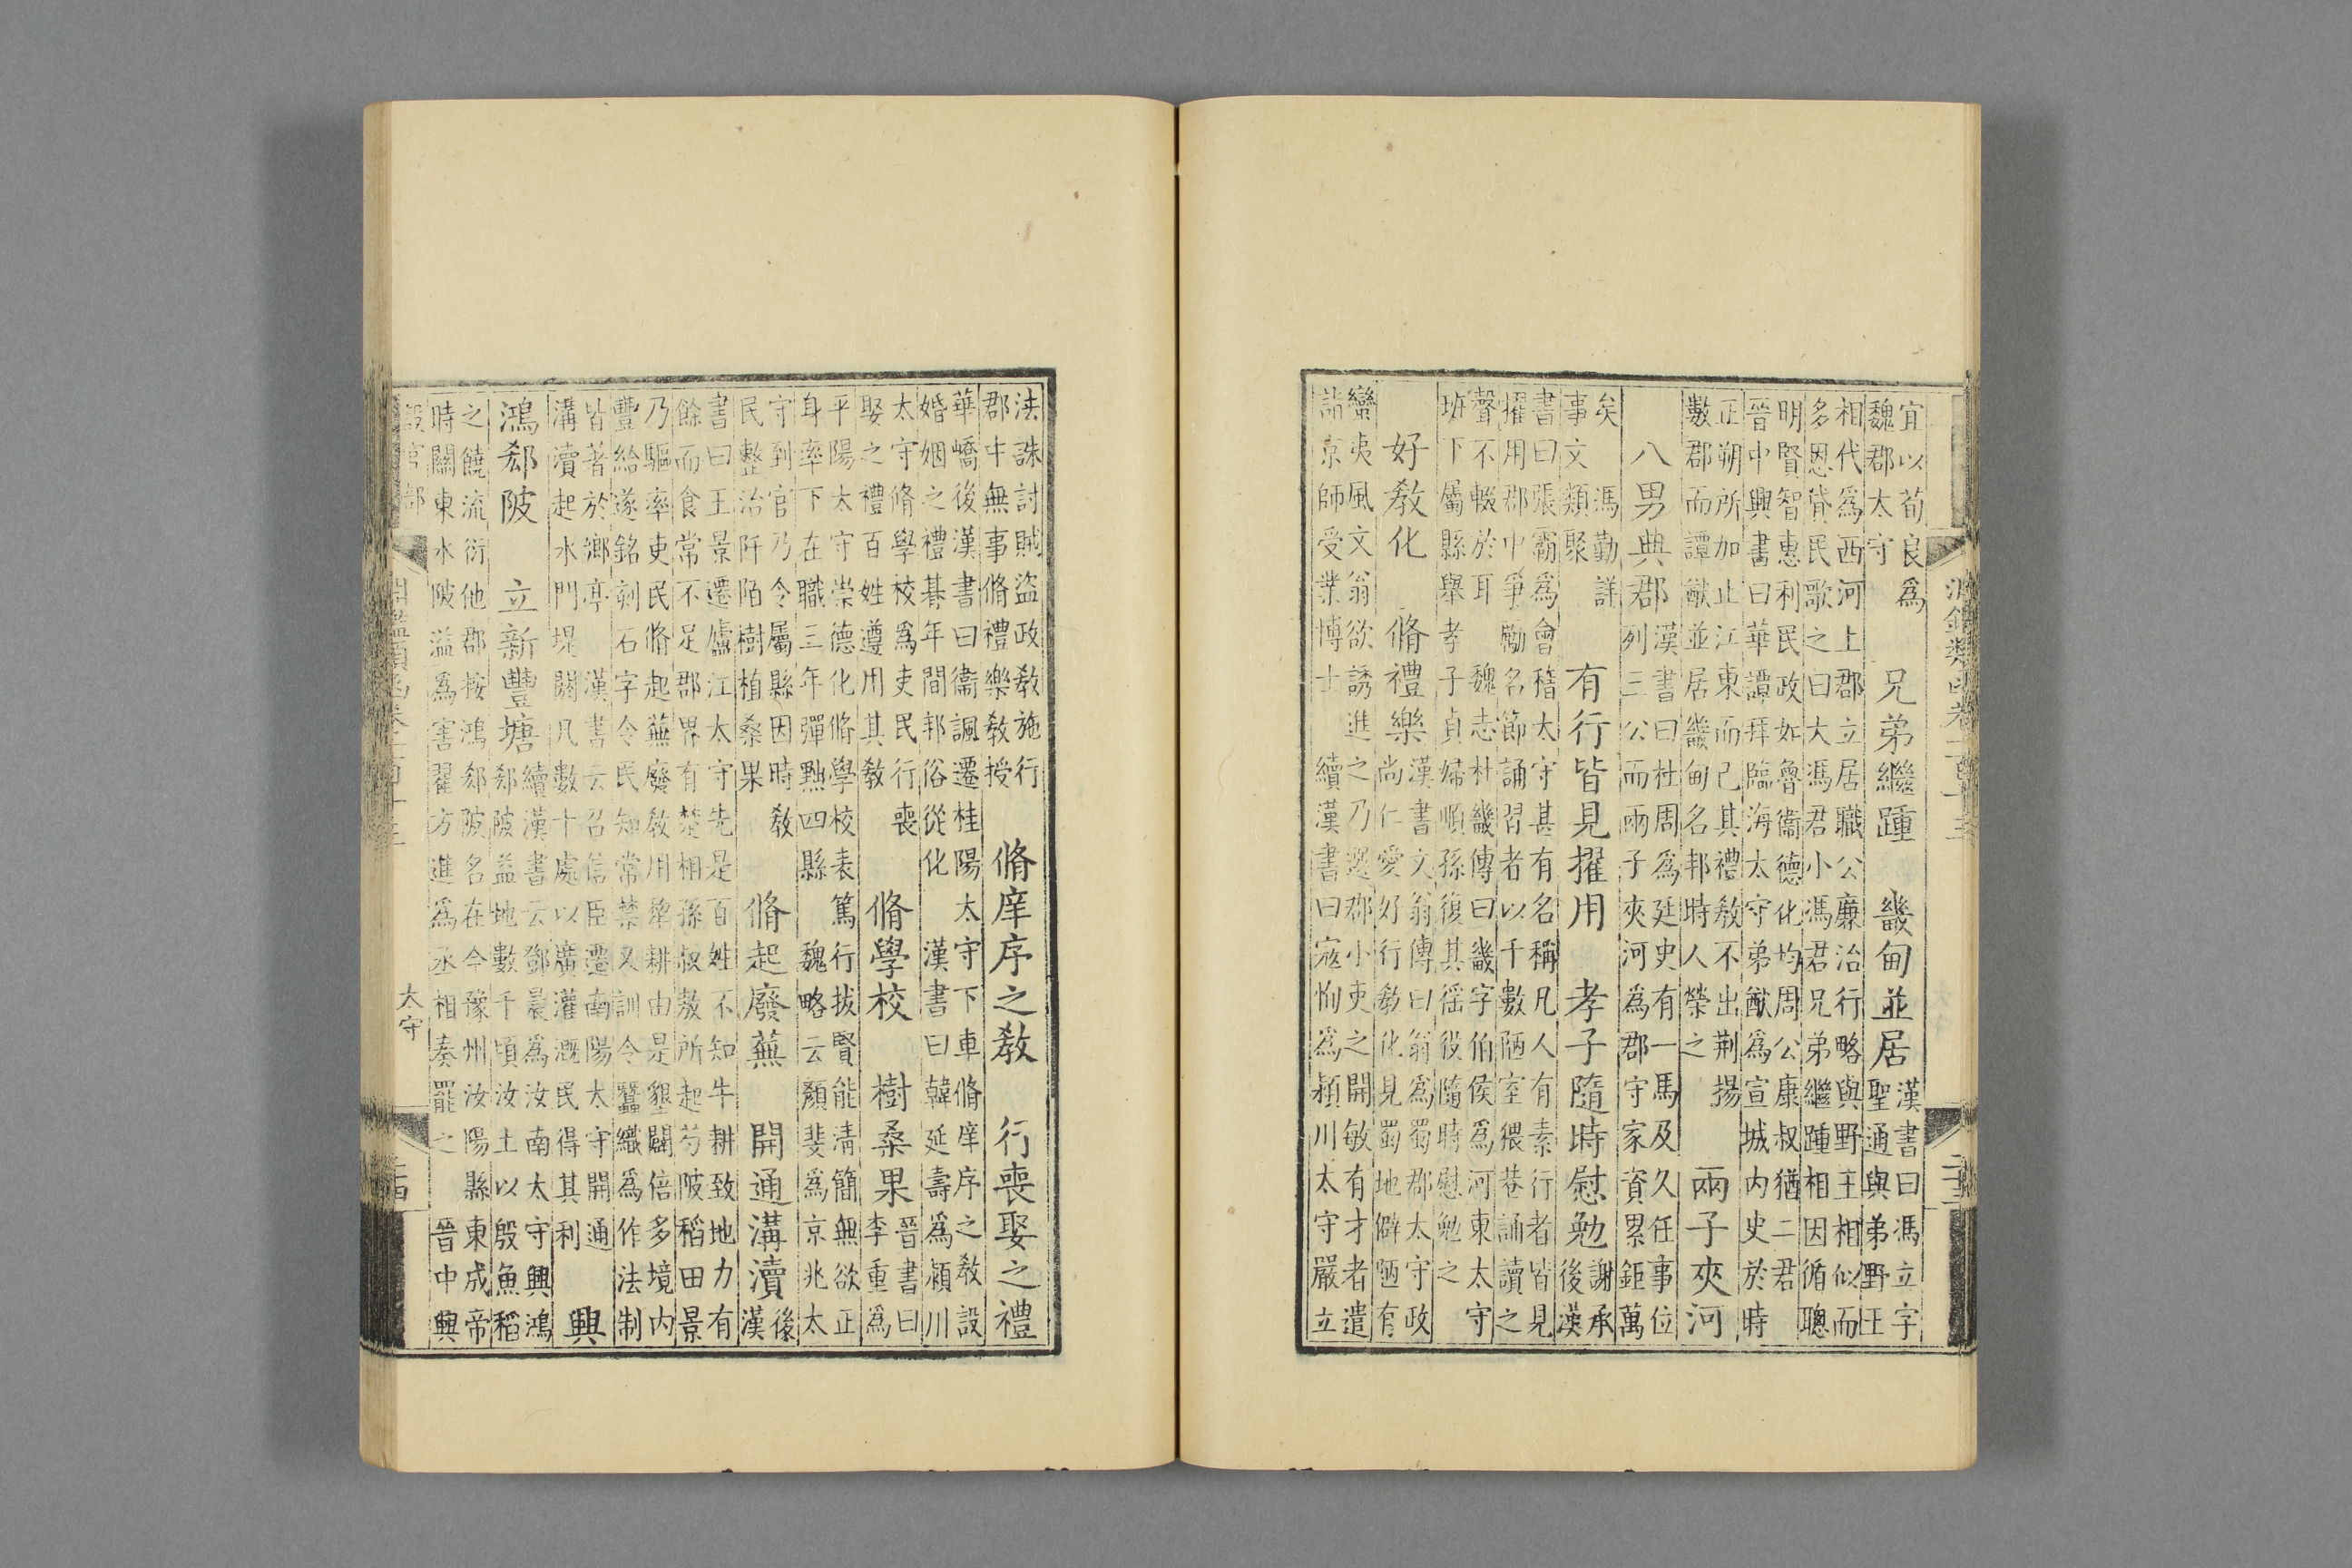 宜以荀良爲
魏郡太守
兄弟繼踵　畿甸並居
漢書曰馮立字
聖通與弟野王
相代爲西河上郡立居職公廉治行略與野王相似而
多恩貸民歌之曰大馮君小馮君兄弟繼踵相因循聰
明賢智惠利民政如魯衞德化均周公康叔猶二君
晉中興書曰華譚拜臨海太守弟猷爲宣城内史於時
正朔所加止江東而已其禮教不出荆揚
數郡而譚猷並居畿甸名邦時人榮之
兩子夾河
八男典郡
漢書曰杜周爲廷史有一馬及久任事位
列三公而兩子夾河為郡守家資累鉅萬
矣　馮勤詳
事文類聚
有行皆見擢用　孝子隨時慰勉
謝承
後漢
書曰張霸爲會稽太守甚有名稱凡人有素行者皆見
擢用郡中爭勵名節誦習者以千數陋室猥巷誦讀之
聲不輟於耳　魏志杜畿傳曰畿字伯侯爲河東太守
班下屬縣舉孝子貞婦順孫復其徭役隨時慰勉之
好教化　脩禮樂
漢書文翁傳曰翁爲蜀郡太守政
尚仁愛好行教化見蜀地僻陋有
蠻夷風文翁欲誘進之乃選郡小吏之開敏有才者遣
詣京師受業博士　續漢書曰寇恂為潁川太守嚴立
法誅討賊盜政教施行
郡中無事脩禮樂教授
脩庠序之教　行喪娶之禮
華嶠後漢書曰衞諷遷桂陽太守下車脩庠序之教設
婚姻之禮朞年間邦俗從化　漢書曰韓延壽爲潁川
太守脩學校爲吏民行喪
娶之禮百姓遵用其教
脩學校　樹桑果
晉書曰
李重爲
平陽太守崇德化脩學校表篤行拔賢能清簡無欲正
身率下在職三年彈黜四縣　魏略云顏斐爲京兆太
守到官乃令屬縣因時教
民整治阡陌樹植桑果
脩起廢蕪　開通溝瀆
後
漢
書曰王景遷廬江太守先是百姓不知牛耕致地力有
餘而食常不足郡界有楚相孫叔敖所起芍陂稻田景
乃驅率吏民脩起蕪廢教用犂耕由是墾闢倍多境内
豐給遂銘刻石字令民知常禁又訓令蠶織爲作法制
皆著於鄉亭　漢書云召信臣遷南陽太守開通
溝瀆起水門堤閼凡數十處以廣灌溉民得其利
興
鴻郄陂　立新豐塘
續漢書云鄧晨爲汝南太守興鴻
郄陂益地數千頃汝土以殷魚稻
之饒流衍他郡　桉鴻郄陂名在今豫州汝陽縣東成帝
時關東水陂溢爲害翟方進爲丞相奏罷之　晉中興
太守